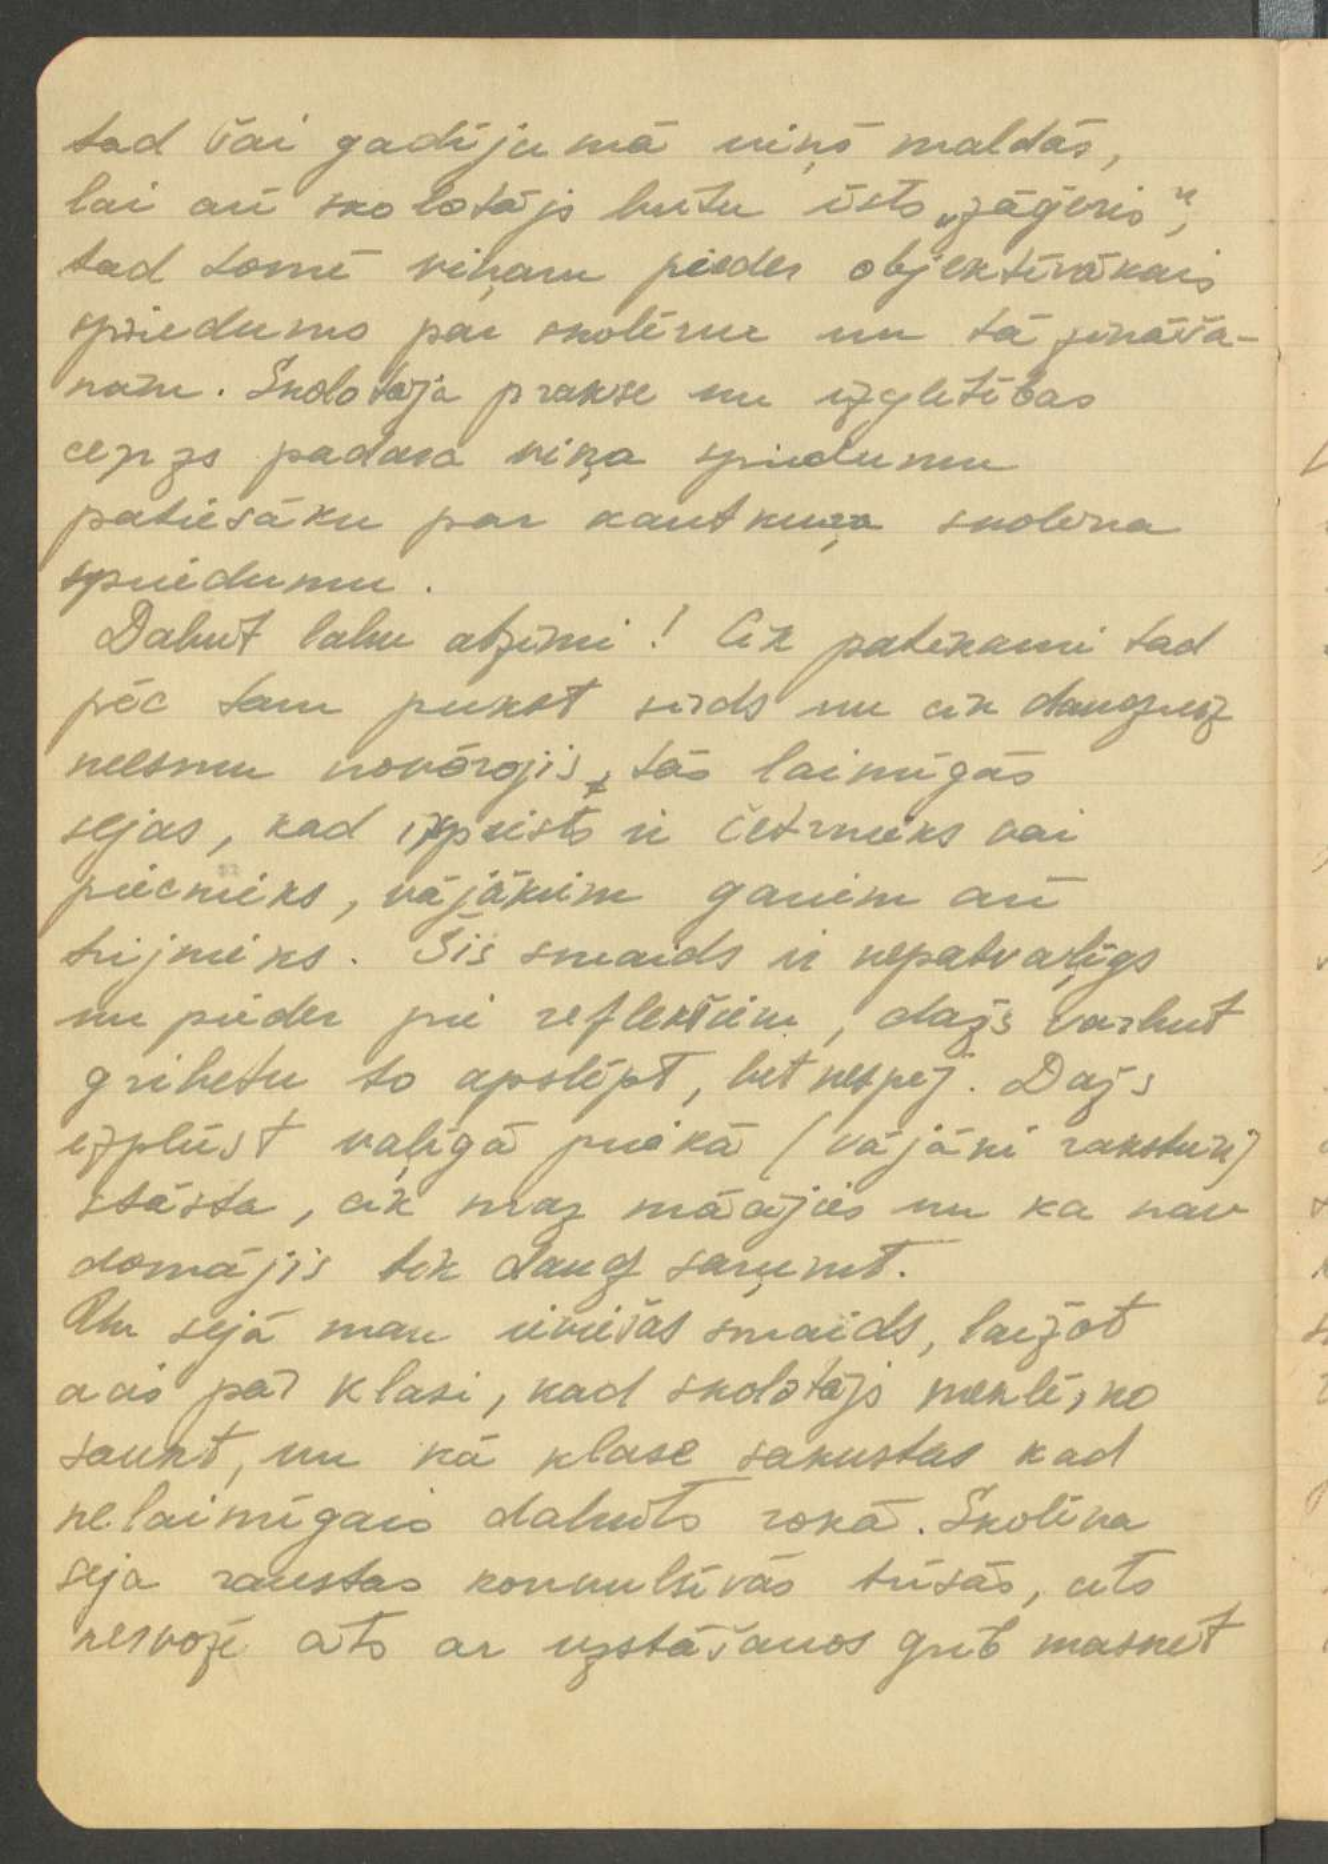 tad šai gadījumā viņš maldās,
lai arī skolotājs butu īsts „jāģeris“,
tad tomē viņam pieder objektīvākais
spriedums par skolēnu un tā zināša-
nām. Skolotāja prakse un izglītības
cenzs padara viņa spriedumu
patiesāku par kautkuŗa skolēna
spriedumu.
Dabut labu atzīmi! Cik patīkami tad
pēc tam pukst sirds un cik daudzreiz
neesmu novērojis, tās laimīgās
sejas, kad izpūsts ir četrnieks vai
piecnieks, vājākiem gariem arī
trijnieks. Šis smaids ir nepatvaļīgs
un pieder pie refleksiem, dažs varbut
gribetu to apslēpt, bet nespēj. Dažs
izplūst vaļīgā priekā (vājāki raksturi)
stāsta, cik maz mācijies un ka nav
domājis tik daudz saņemt.
Un sejā man ieviešas smaids, laižot
acis pār klasi, kad skolotājs meklē, ko
saukt, un kā klase sakustas kad
nelaimīgais dabuts rokā. Skolēna
seja raustas konvulsīvās trīsās, cits
nervozē cits ar uzstāšanos grib masket